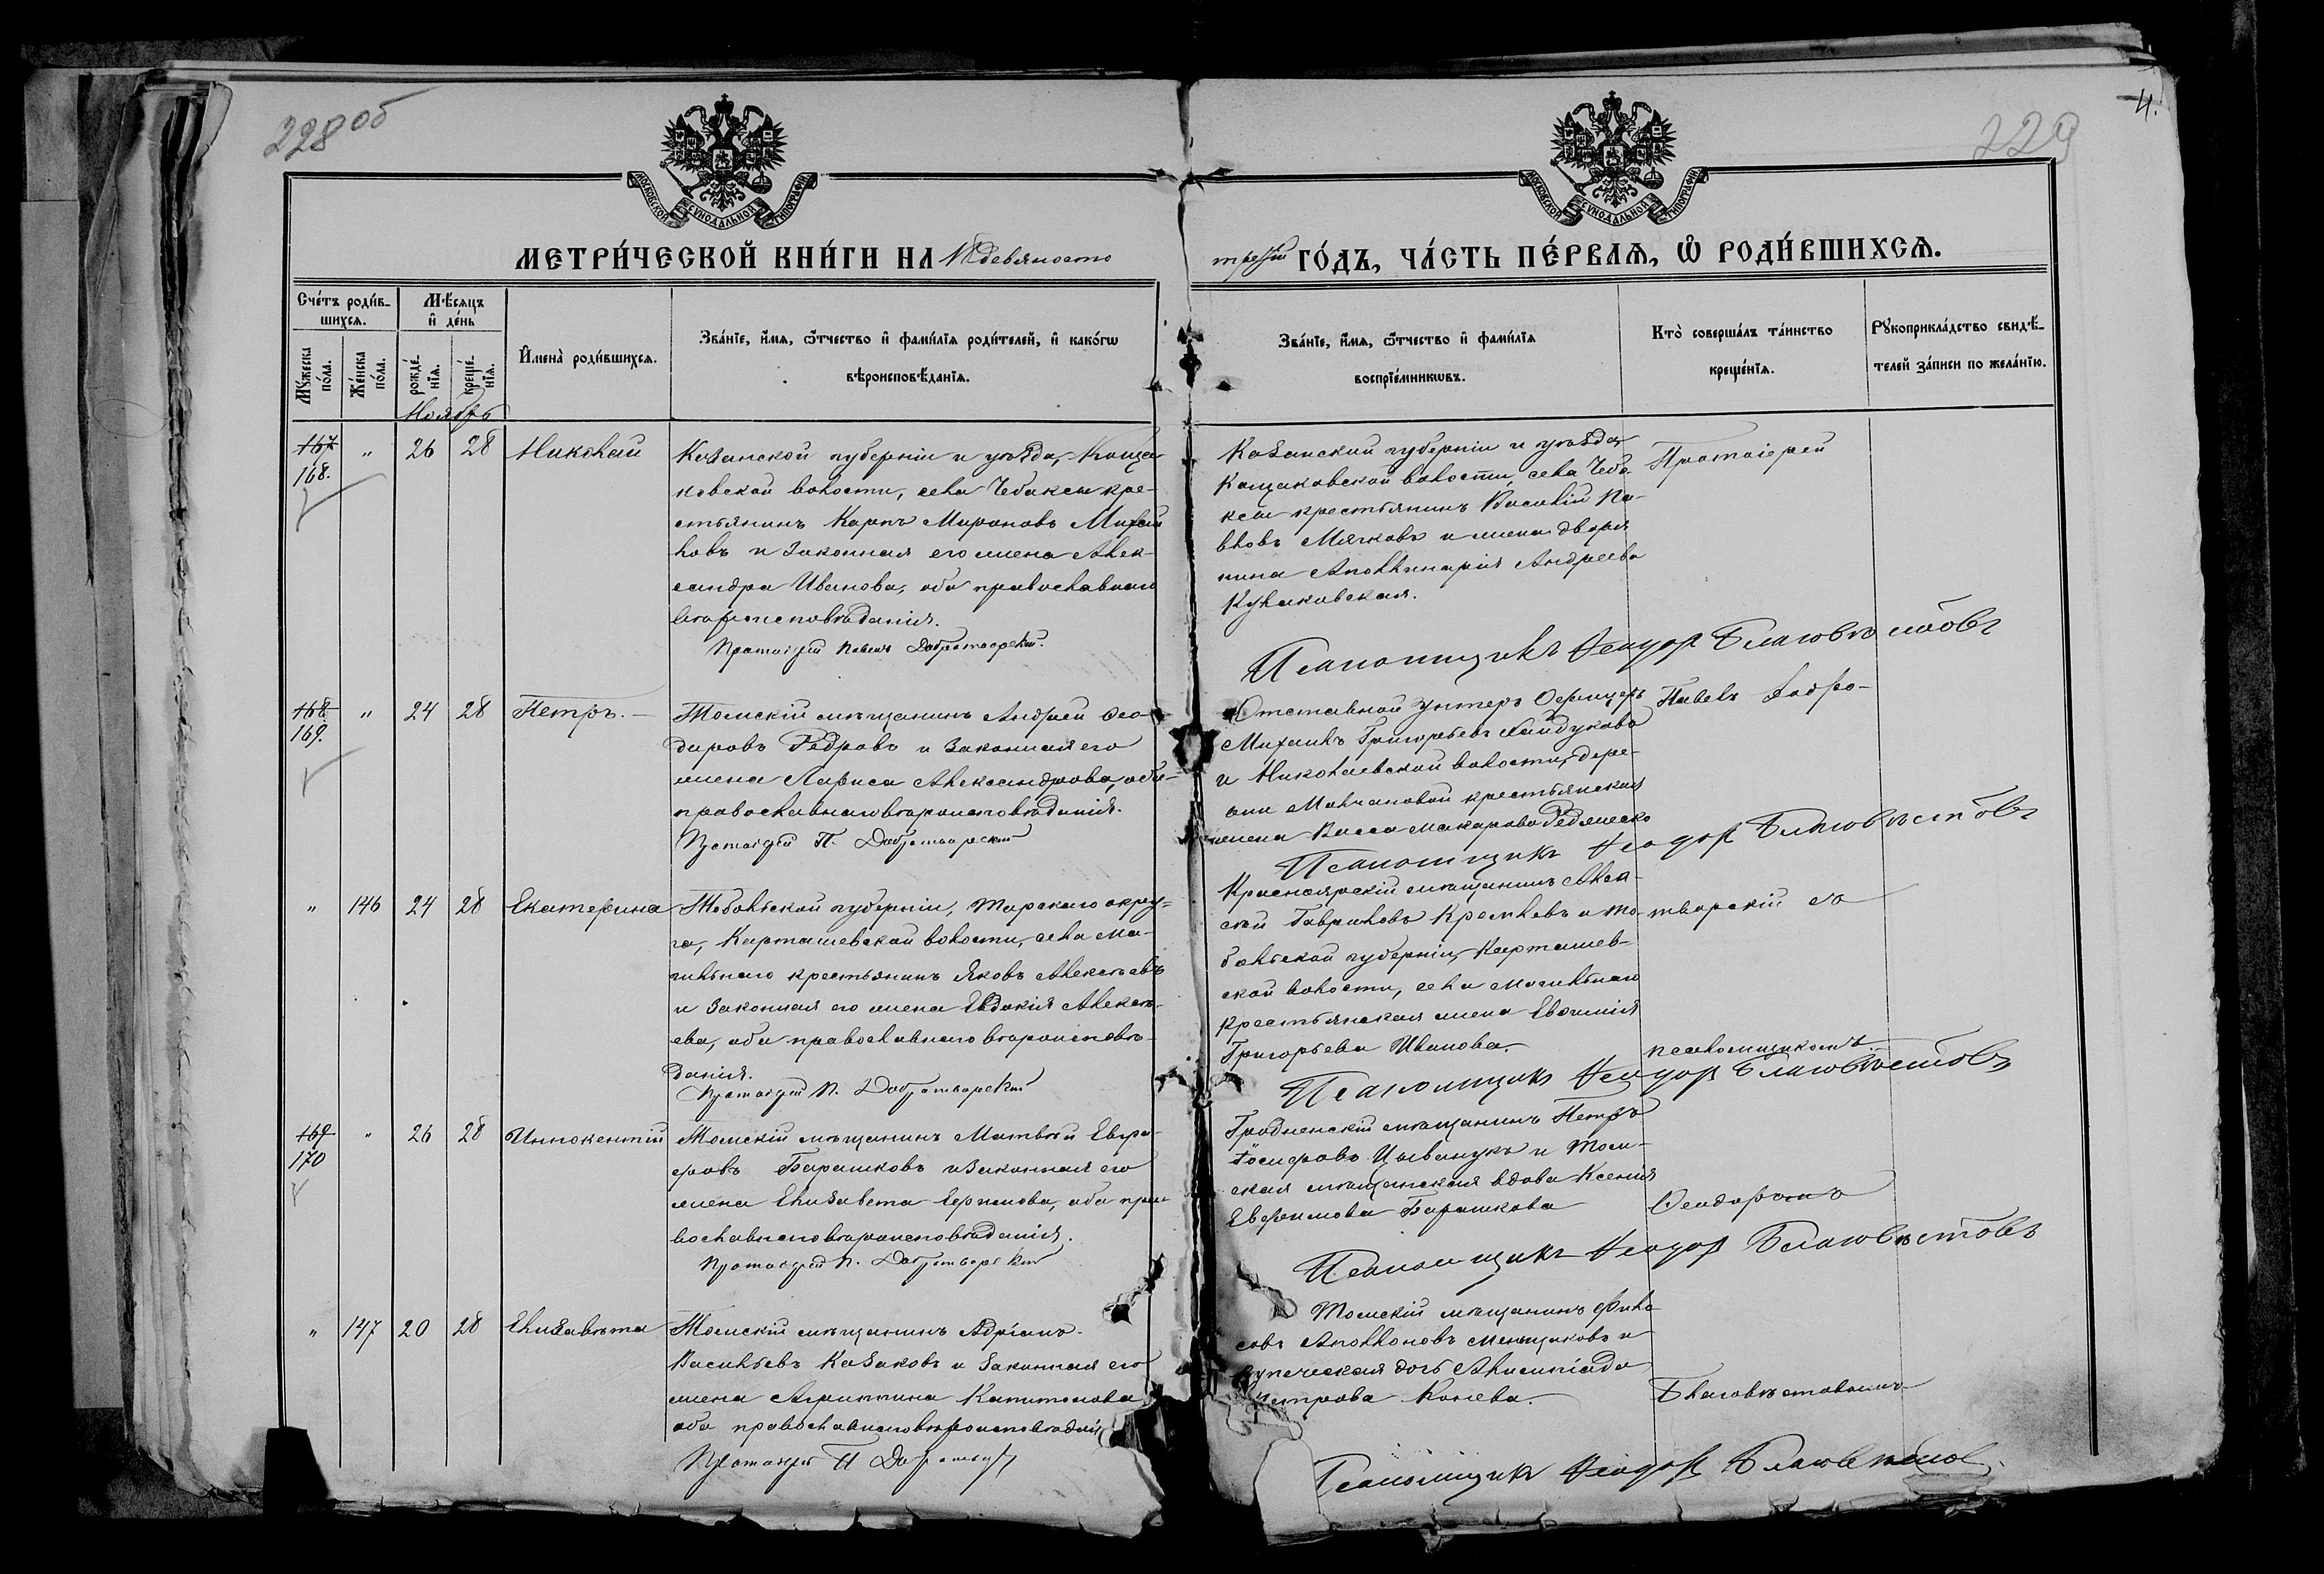 228 об
229
4.
МОСКОВСКОЙ СѴНОДАЛЬНОЙ ТИПОГРАФІИ
МОСКОВСКОЙ СѴНОДАЛЬНОЙ ТИПОГРАФІИ
МЕТРИ́ЧЕСКОЙ КНИ́ГИ НА 18 девяносто
третій ГО́ДЪ, ЧА́СТЬ ПЕ́РВАѦ, Ѡ҆ РОДИ́ВШИХСѦ.
Сче́тъ роди́в-
шихсѧ.
Мѣ́сяцъ
и҆ де́нь
Мꙋ́жеска
по́ла.
Же́нска
по́ла.
рожде́-
нїѧ.
креще́-
нїѧ.
И҆мена̀ роди́вшихсѧ.
Зва́нїе, и҆́мѧ, ѻ҆́тчество и҆ фами́лїѧ роди́телей, и҆ како́гѡ
вѣроисповѣ́данїѧ.
Зва́нїе, и҆́мѧ, ѻ҆́тчество и҆ фами́лїѧ
воспрїе́мникѡвъ.
Кто̀ соверша́лъ та́инство
креще́нїѧ.
Рꙋкоприкла́дство свидѣ́-
телей за́писи по жела́нїю.
Ноябрь
167
168.
„ 26 28 Николай
Казанской губерніи и уѣзда, Коща-
ковской волости, села Чебаксы кре-
стьянинъ Карпъ Мироновъ Михай
ловъ и законная его жена Алек-
сандра Иванова, оба православнаго
вѣроисповѣданія.
Протоіерей Павелъ Добротворскій.
Казанской губерніи и уѣзда
Кощаковской волости, села Чеба
ксы крестьянинъ Василій Па-
вловъ Мягковъ и жена дворя
нина Аполлинарія Андреева
Кулаковская.
Протоіерей
Псаломщикъ Ѳеодоръ Благовѣстовъ
168.
169.
„ 24 28 Петръ. -
Томскій мѣщанинъ Андрей Ѳео-
доровъ Ѳедровъ и законная его
жена Лариса Александрова, оба-
православнаго вѣроисповѣданія.
Протоіерей П. Добротворскій
Отставной Унтеръ Офицеръ
Михаилъ Григорьевъ Хайдуковъ
и Николаевской волости, дере-
вни Молчановой крестьянская
жена Васса Макарова
Павелъ Добро-
Псаломщикъ Ѳеодоръ Благовѣстовъ
„ 146 24 28 Екатерина
Тобольской губерніи, Тарскаго окру-
га, Карташевской волости, села Мо-
гильнаго крестьянинъ Яковъ Алексѣевъ
и законная его жена Евдокія Алексѣ-
ева, оба православнаго вѣроисповѣ-
данія.
Протоіерей П. Добротворскій
Красноярскій мѣщанинъ Алек
сѣй Гавриловъ Кремлевъ и То-
больской губерніи, Карташев-
ской волости, села Могильнаго
крестьянская жена Евѳимія
Григорьева Иванова.
творскій съ
псаломщикомъ
Псаломщикъ Ѳеодоръ Благовѣстовъ
169
170
„ 26 28 Иннокентій
Томскій мѣщанинъ Матвѣй Евгра-
фовъ Барашковъ и законная его
жена Елизавета Ефимова, оба пра-
вославнаго вѣроисповѣданія.
Протоіерей П. Добротворскій
Гродненскій мѣщанинъ Петръ
Іосифовъ и Том-
ская мѣщанская вдова Ксенія
Евфимова Барашкова
Ѳеодоромъ
Псаломщикъ Ѳеодоръ Благовѣстовъ
„ 147 20 28 Елизавѣта
Томскій мѣщанинъ Адріанъ
Васильевъ Казаковъ и законная его
жена Агриппина Капитонова
оба православнаго вѣроисповѣданія
Протоіерей П Добротворскій
Томскій мѣщанинъ Фила
Аполлоновъ Меньщиковъ и
купеческая дочь Алимпіада
Петрова Конева.
Благовѣстовымъ
Псаломщикъ Ѳеодоръ Благовѣстов